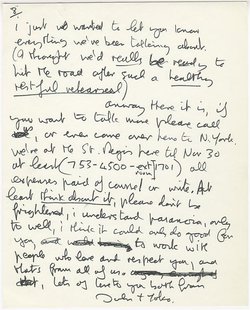 3
i just wanted to let you know
everything we've been talking about.
(I thought we'd really be ready to
hit the road after such a healthy
restful rehearsal)
Anyway there it is, if
you want to talk more please call
us, or even come over here to N. York.
we're at the St. Regis here til Nov 30
at least (753-4500-ext/1701) all
expenses paid of course! or write. At
least think about it, please don't be
frightened, i understand paranoia, only
to well, i think it could only do good for
you, to work with
people who love and respect you, and
that's from all of us.
lots of love to you both from
John + Yoko.